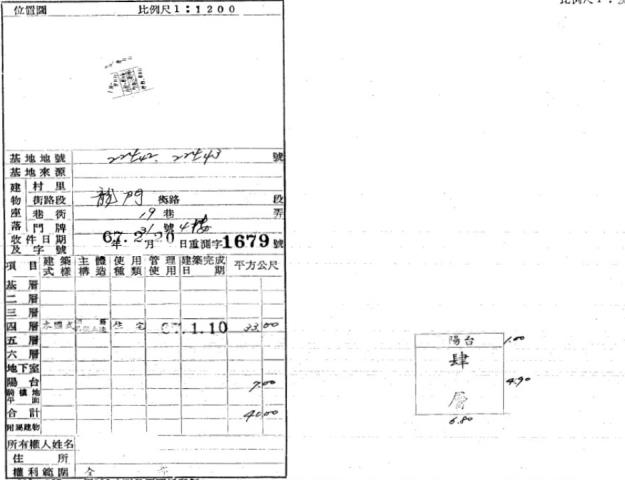 位置圖 比例尺1:1200
比例尺1:
基地地號 號
基地來源
建物座落 村里
街路段 龍門 街路 段
巷街 19巷 弄
門牌 31號4樓
收件日期及字號 67年2月20日重測字1679號
項目 建築式樣 主體構造 使用種類 管理使用 建築完成日期 平方公尺
基層
二層
三層
四層 本國式 住宅 67.1.10 33.00
五層
六層
地下室
陽台 7.00
騎樓地平面
合計 40.00
附屬建物
所有權人姓名
住所
權利範圍 全
陽台 1.00
肆層 4.90
6.80